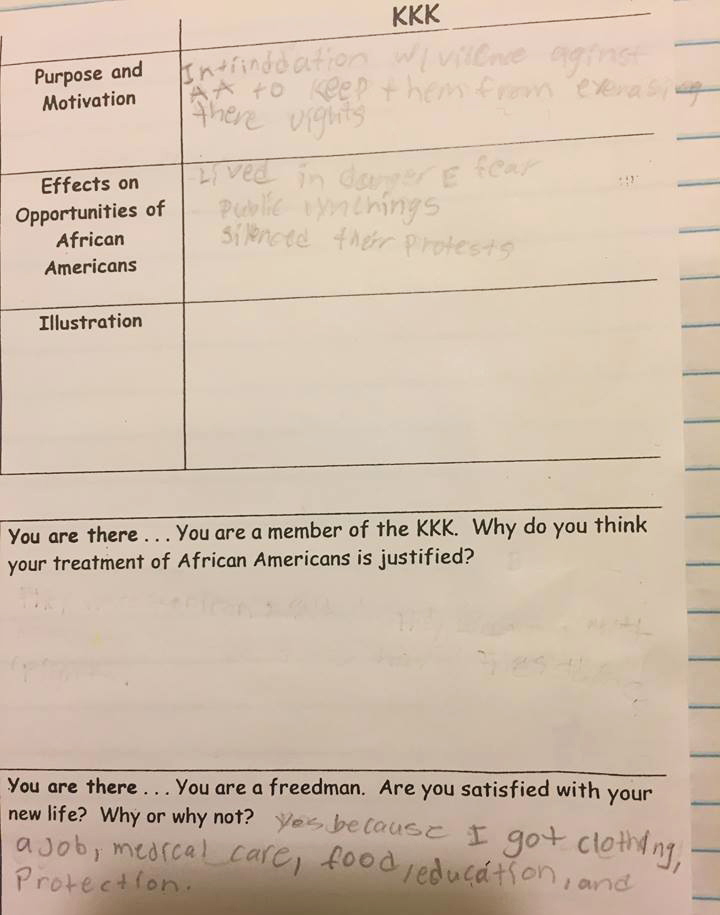 KKK
Purpose and
Motivation
Intiinddation w/ vilence aginst
AA to keep them from
there rights
Effects on
Opportunities of
African
Americans
Lived in danger & fear
public lynchings
silenced their protests
Illustration
You are there . . . You are a member of the KKK. Why do you think
your treatment of African Americans is justified?
You are there . . . You are a freedman. Are you satisfied with your
new life? Why or why not? Yes because I got clothing,
a Job, medical care, food, education, and
Protection.